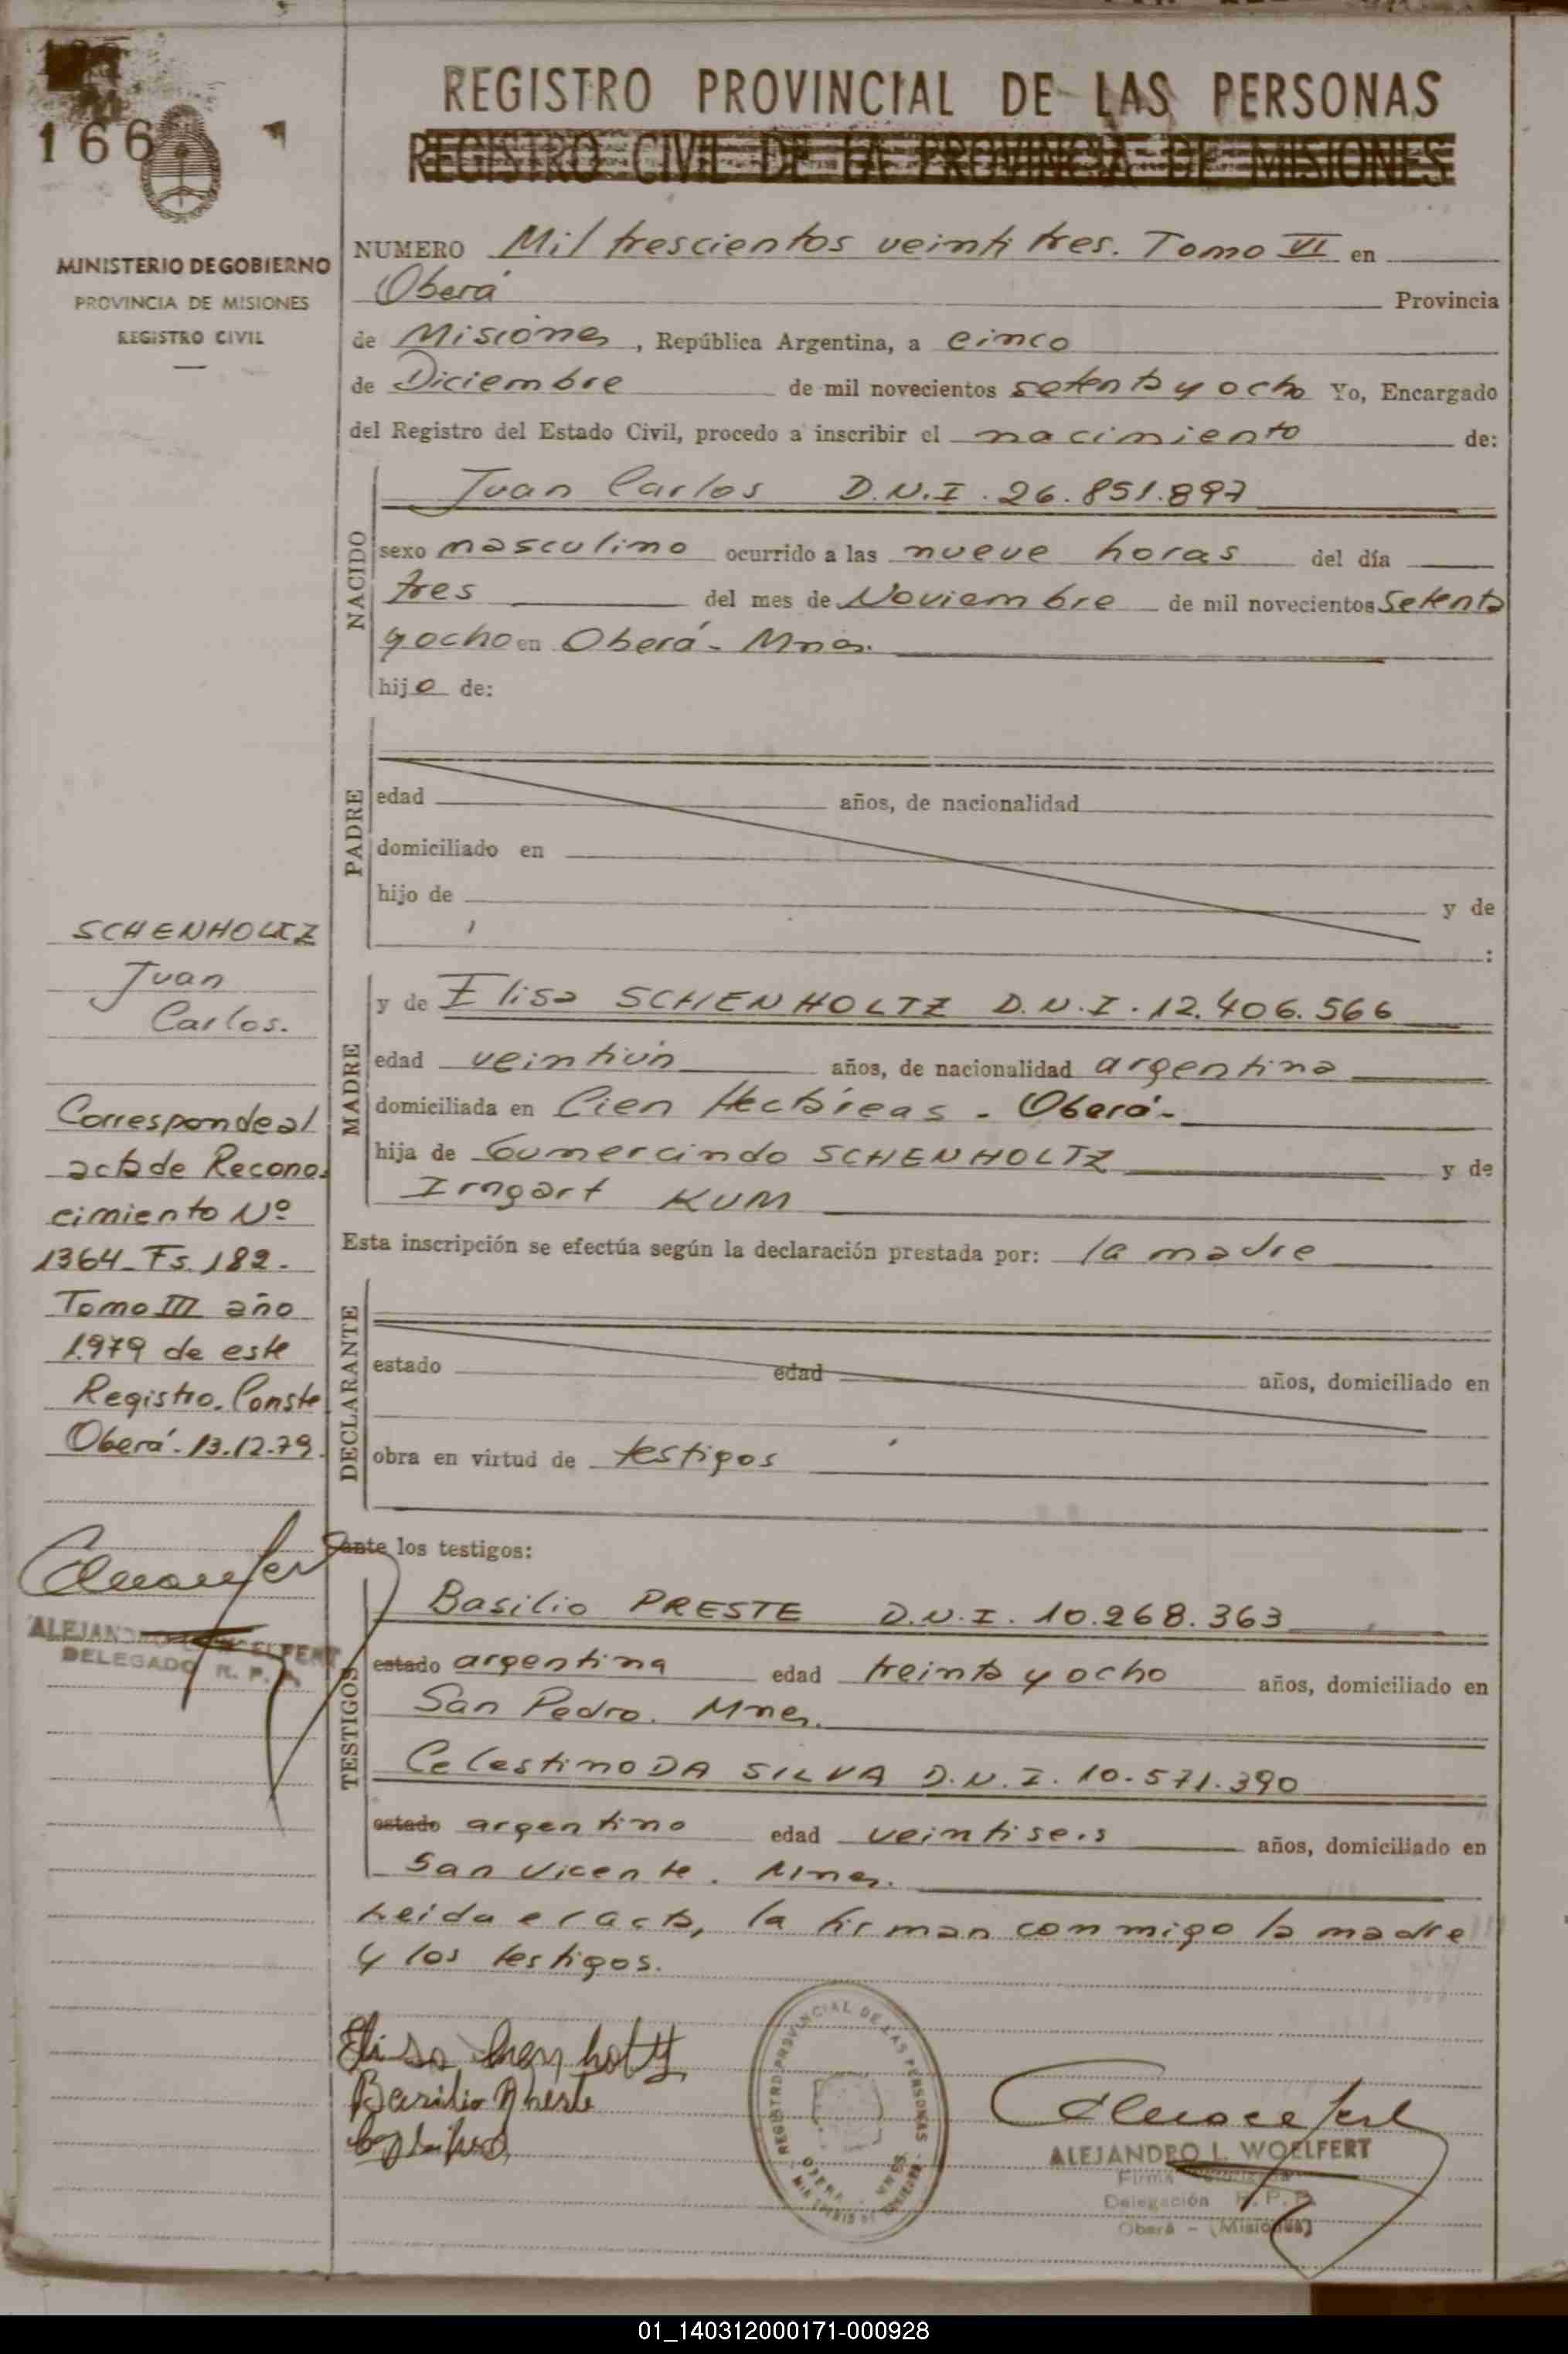 166
REGISTRO PROVINCIAL DE LAS PERSONAS
REGISTRO CIVIL DE LA PROVINCIA DE MISIONES
MINISTERIO DE GOBIERNO
PROVINCIA DE MISIONES
REGISTRO CIVIL
NUMERO Mil trescientos veinti tres. Tomo VI en
Oberá Provincia
de Misiones, República Argentina, a cinco
de Diciembre de mil novecientos setenta y ocho Yo, Encargado
del Registro del Estado Civil, procedo a inscribir el nacimiento de:
NACIDO
Juan Carlos D.N.I. 26.851.897
sexo masculino ocurrido a las nueve horas del día
tres del mes de Noviembre de mil novecientos setenta
y ocho en Oberá - Mnes.
hijo de:
PADRE
edad años, de nacionalidad
domiciliado en
hijo de y de
:
SCHENHOLTZ
Juan
Carlos.
Corresponde al
acta de Recono-
cimiento Nº
1364 - Fs. 182.
Tomo III año
1979 de este
Registro. Conste
Oberá - 13.12.79.
DELEGADO R. P. P.
MADRE
y de Elisa SCHENHOLTZ D.N.I. 12.406.566
edad veintiún años, de nacionalidad argentina
domiciliada en Cien Hectáreas - Oberá -
hija de Gumercindo SCHENHOLTZ y de
Irngart KUM
Esta inscripción se efectúa según la declaración prestada por: la madre
DECLARANTE
estado edad años, domiciliado en
obra en virtud de testigos
ante los testigos:
TESTIGOS
Basilio PRESTE D.N.I. 10.268.363
estado argentina edad treinta y ocho años, domiciliado en
San Pedro. Mnes.
Celestino DA SILVA D.N.I. 10.571.390
estado argentino edad veintiseis años, domiciliado en
San Vicente. Mnes.
Leida el acta, la firman conmigo la madre
y los testigos.
Elisa Schenholtz
Basilio Preste
REGISTRO PROVINCIAL DE LAS PERSONAS
OBERA MNES.
ALEJANDRO L. WOELFERT
Firma
Delegación R. P. P.
Oberá - (Misiones)
01_140312000171-000928